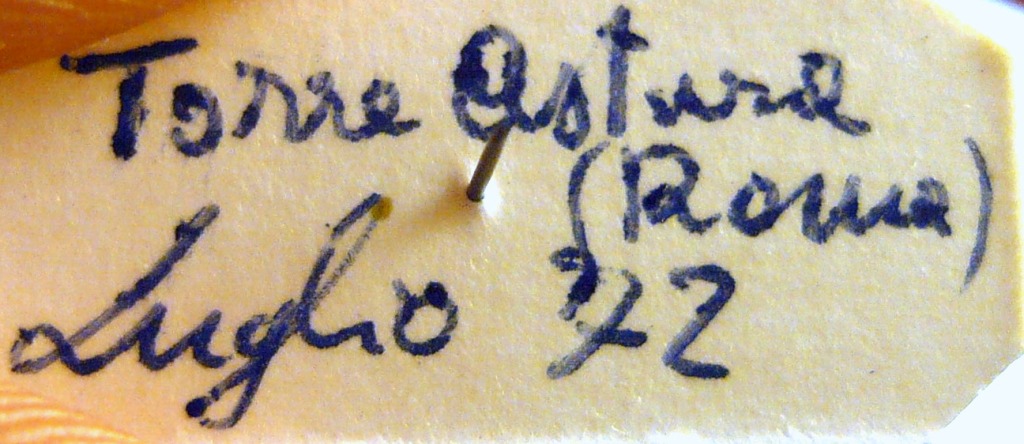 Torre Astura
(Roma)
Luglio 72